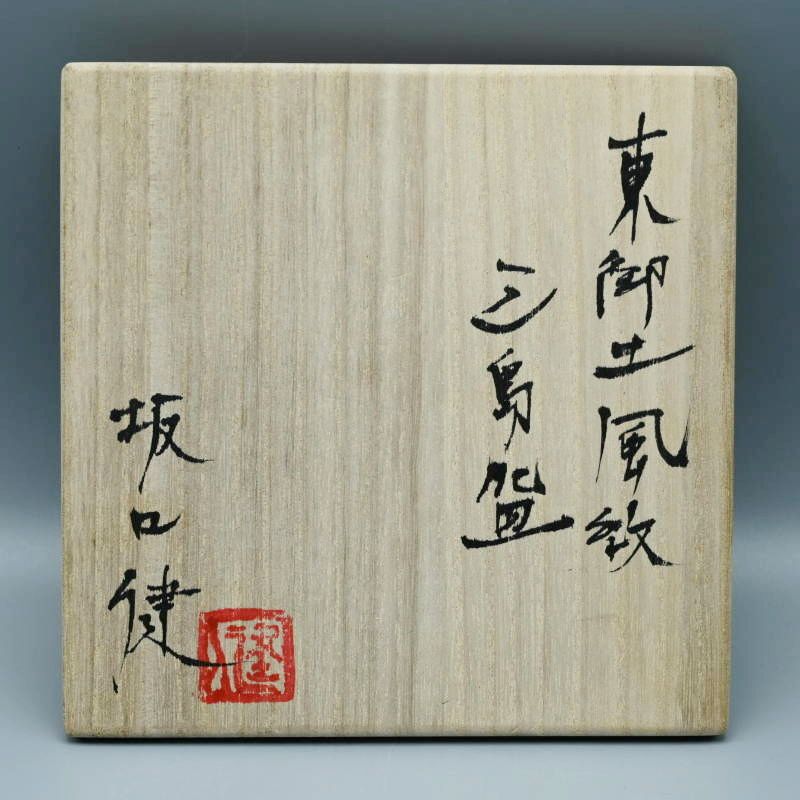 東御土風紋
三島盌
坂口健